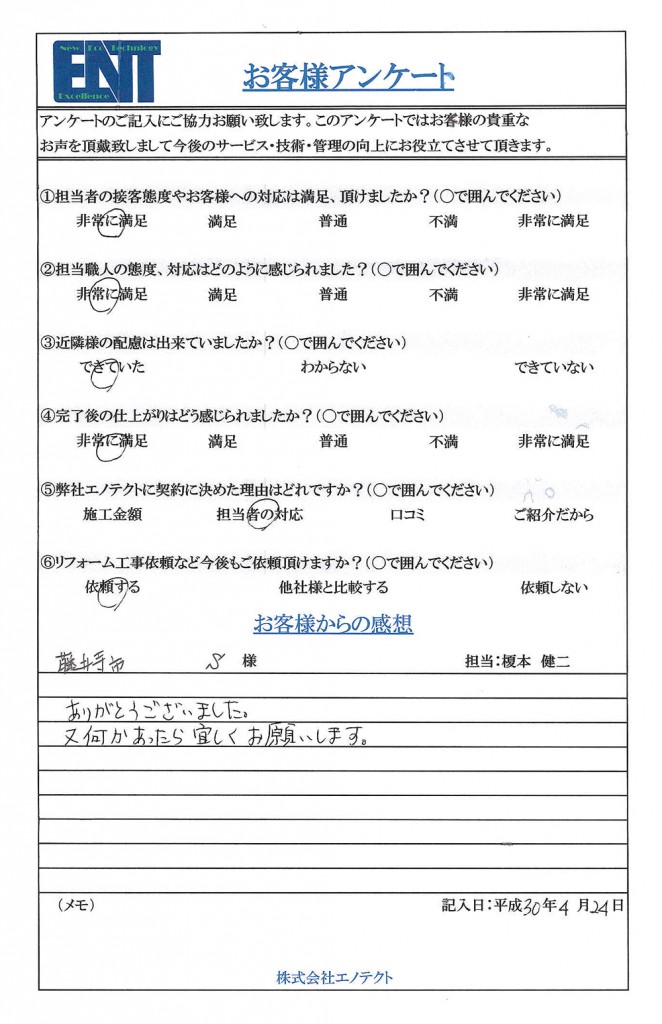 New Eco Technology
ENT
Excellence
お客様アンケート
アンケートのご記入にご協力お願い致します。このアンケートではお客様の貴重な
お声を頂戴致しまして今後のサービス・技術・管理の向上にお役立てさせて頂きます。
①担当者の接客態度やお客様への対応は満足、頂けましたか？(〇で囲んでください)
非常に満足 満足 普通 不満 非常に満足
②担当職人の態度、対応はどのように感じられました？(〇で囲んでください)
非常に満足 満足 普通 不満 非常に満足
③近隣様の配慮は出来ていましたか？(〇で囲んでください)
できていた わからない できていない
④完了後の仕上がりはどう感じられましたか？(〇で囲んでください)
非常に満足 満足 普通 不満 非常に満足
⑤弊社エノテクトに契約に決めた理由はどれですか？(〇で囲んでください)
施工金額 担当者の対応 口コミ ご紹介だから
⑥リフォーム工事依頼など今後もご依頼頂けますか？(〇で囲んでください)
依頼する 他社様と比較する 依頼しない
お客様からの感想
藤井寺市 S 様 担当：榎本 健二
ありがとうございました。
又何かあったら宜しくお願いします。
(メモ) 記入日：平成30年4月24日
株式会社エノテクト